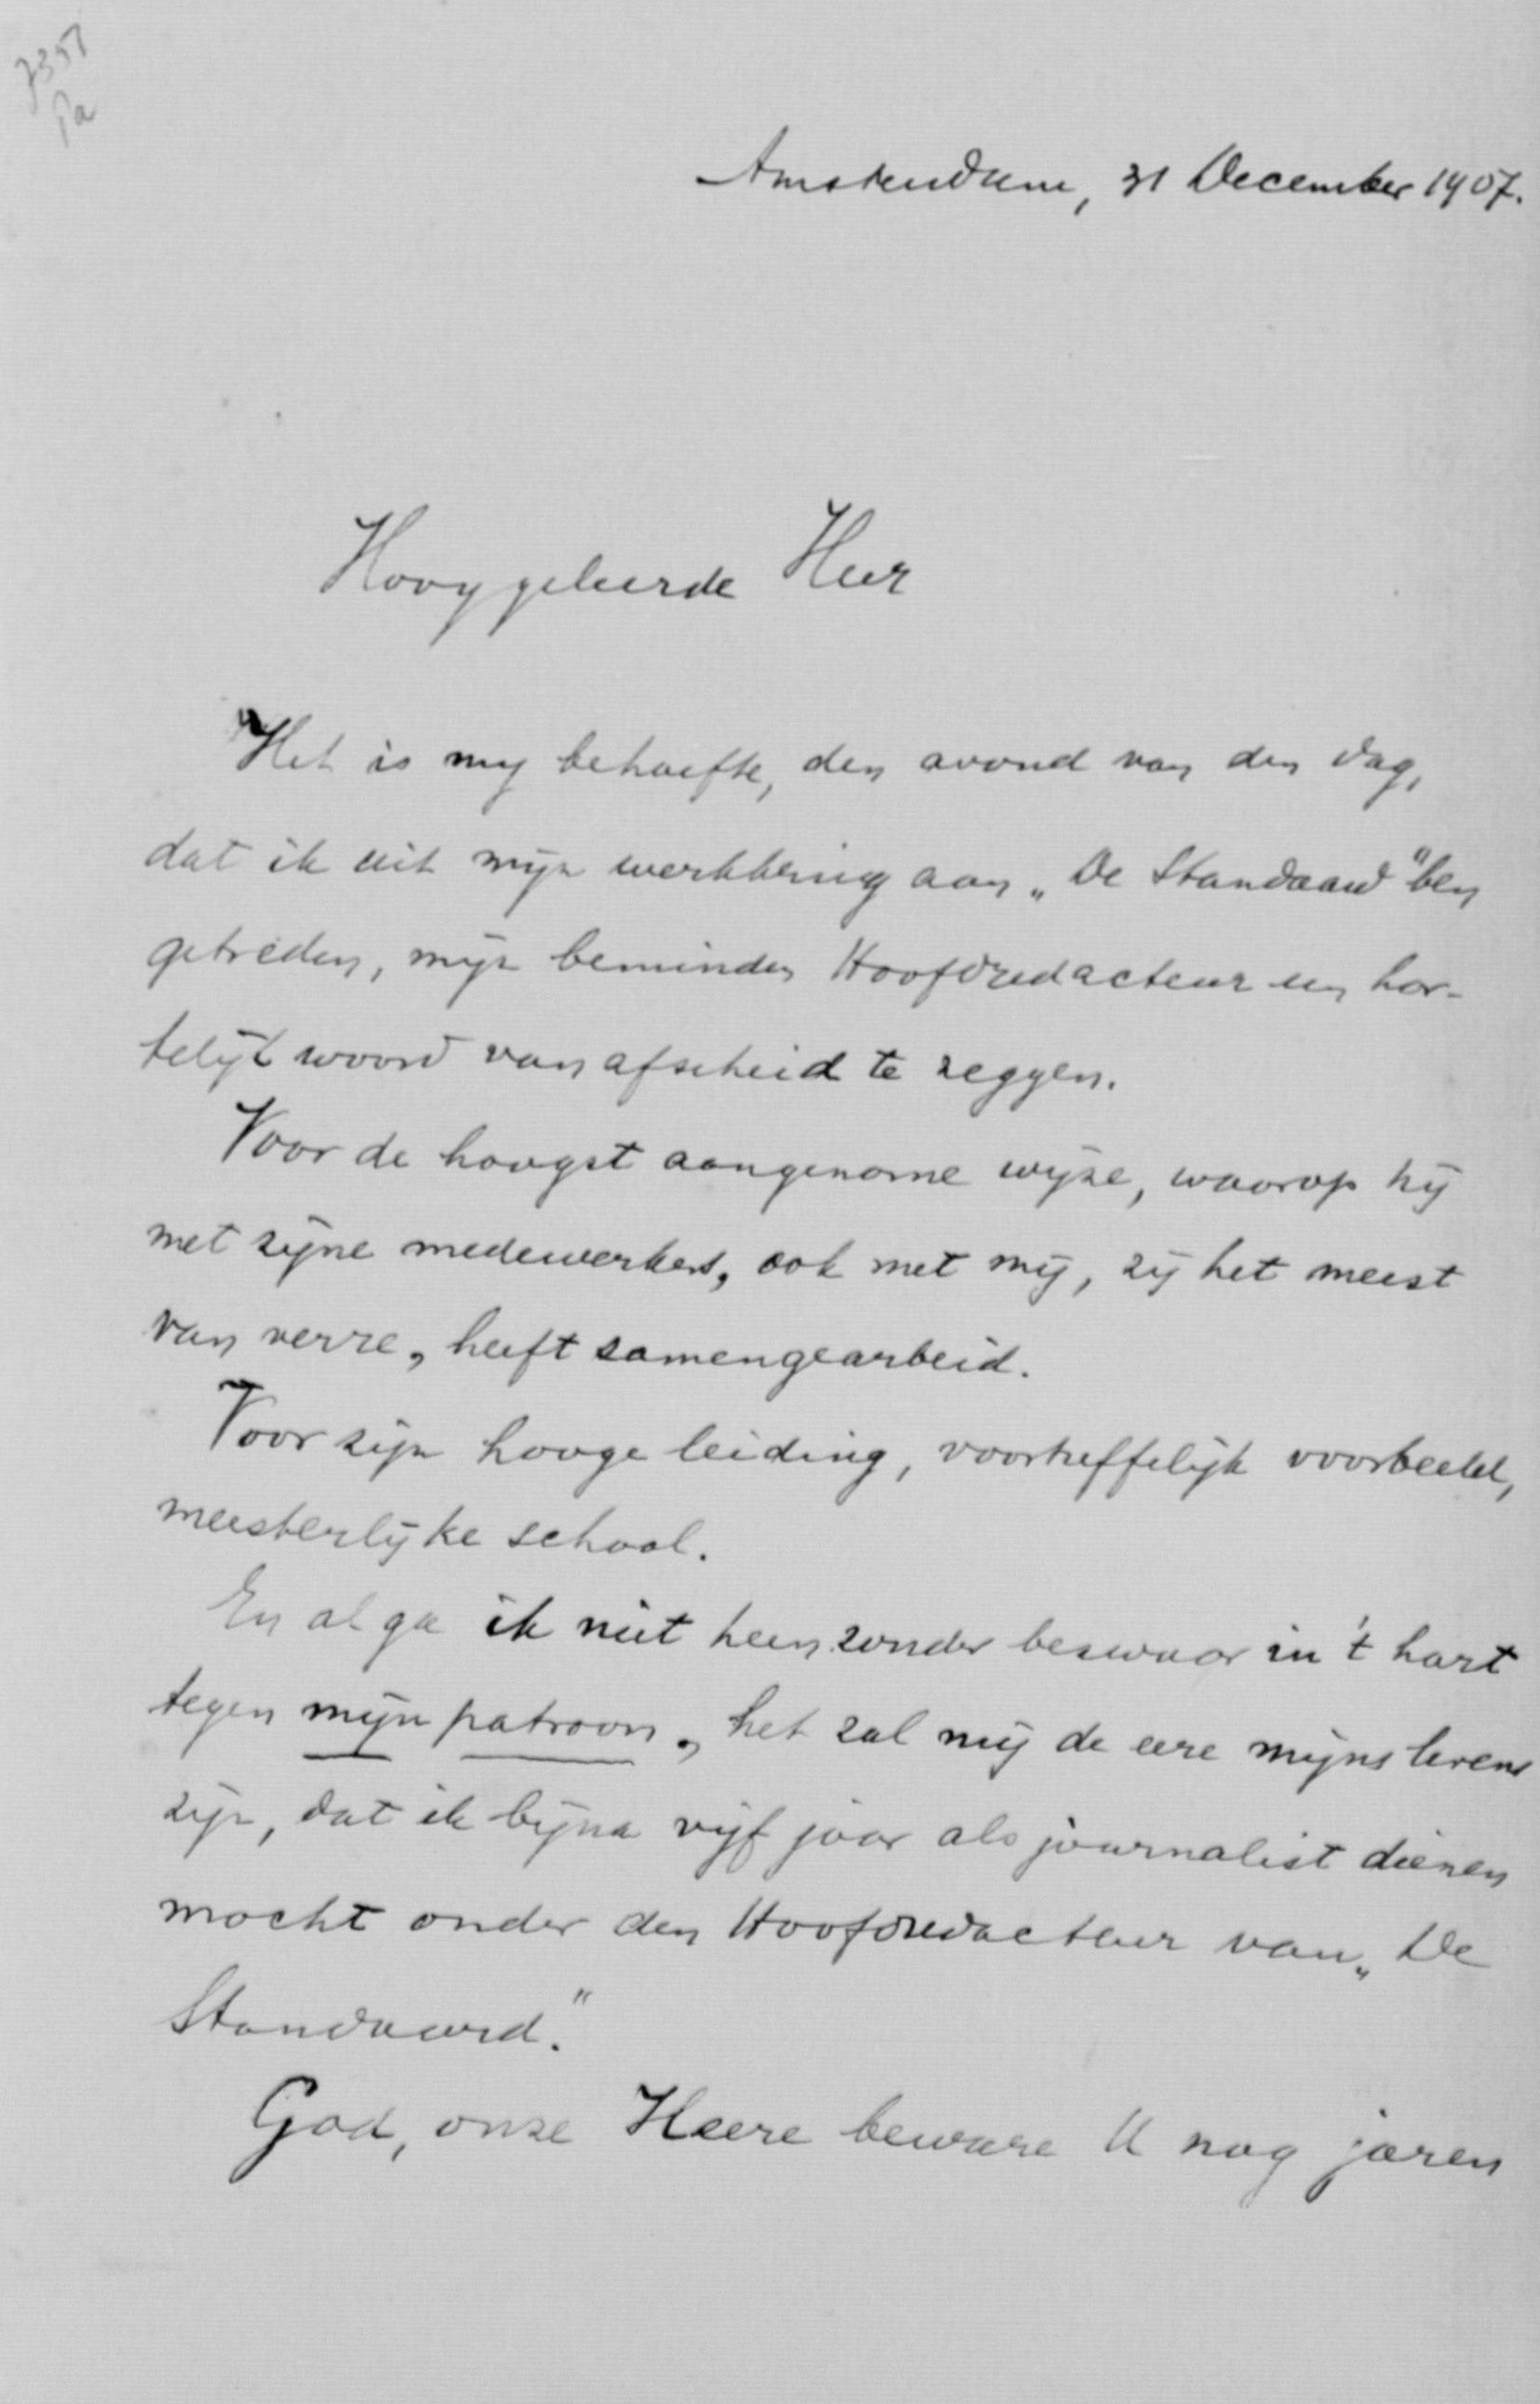 7351
Pa
Amsterdam, 31 December 1907.
Hooggeleerde Heer
Het is mij behoefte, den avond van den dag,
dat ik uit mijn werkkring aan „De Standaard" ben
getreden, mijn beminden Hoofdredacteur een har-
telijk woord van afscheid te zeggen.
Voor de hoogst aangename wijze, waarop hij
met zijne medewerkers, ook met mij, zij het meest
van verre, heeft samengearbeid.
Voor zijn hooge leiding, voortreffelijk voorbeeld,
meesterlijke school.
En al ga ik niet heen zonder bezwaar in 't hart
tegen mijn patroon, het zal mij de eere mijns levens
zijn, dat ik bijna vijf jaar als journalist dienen
mocht onder den Hoofdredacteur van „De
Standaard."
God, onze Heere beware U nog jaren